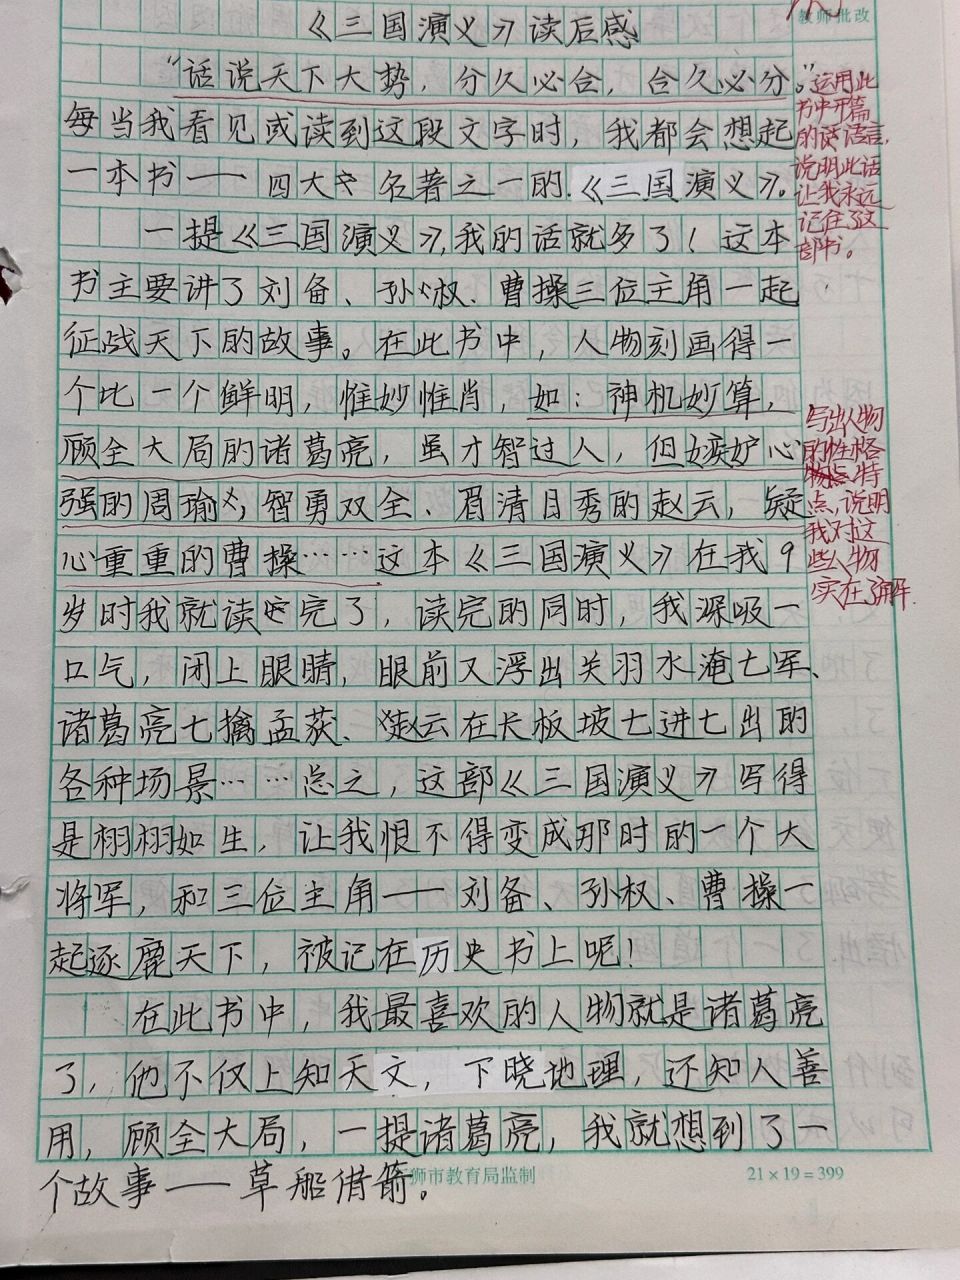 教师批改
《三国演义》读后感
“话说天下大势，分久必合，合久必分。”
每当我看见或读到这段文字时，我都会想起
一本书——四大名著之一的《三国演义》。
一提《三国演义》，我的话就多了！这本
书主要讲了刘备、孙权、曹操三位主角一起
征战天下的故事。在此书中，人物刻画得一
个比一个鲜明，惟妙惟肖，如：神机妙算，
顾全大局的诸葛亮，虽才智过人，但嫉妒心
强的周瑜，智勇双全、眉清目秀的赵云，疑
心重重的曹操……这本《三国演义》在我9
岁时我就读完了，读完的同时，我深吸一
口气，闭上眼睛，眼前又浮出关羽水淹七军、
诸葛亮七擒孟获、赵云在长板坡七进七出的
各种场景……总之，这部《三国演义》写得
是栩栩如生，让我恨不得变成那时的一个大
将军，和三位主角——刘备、孙权、曹操一
起逐鹿天下，被记在历史书上呢！
在此书中，我最喜欢的人物就是诸葛亮
了，他不仅上知天文，下晓地理，还知人善
用，顾全大局，一提诸葛亮，我就想到了一
个故事——草船借箭。
运用此
书中开篇
的语言，
说明此话
让我永远
记住了这
部书。
写出人物
的性格
特
点，说明
我对这
些人物
实在了解.
狮市教育局监制
21×19=399